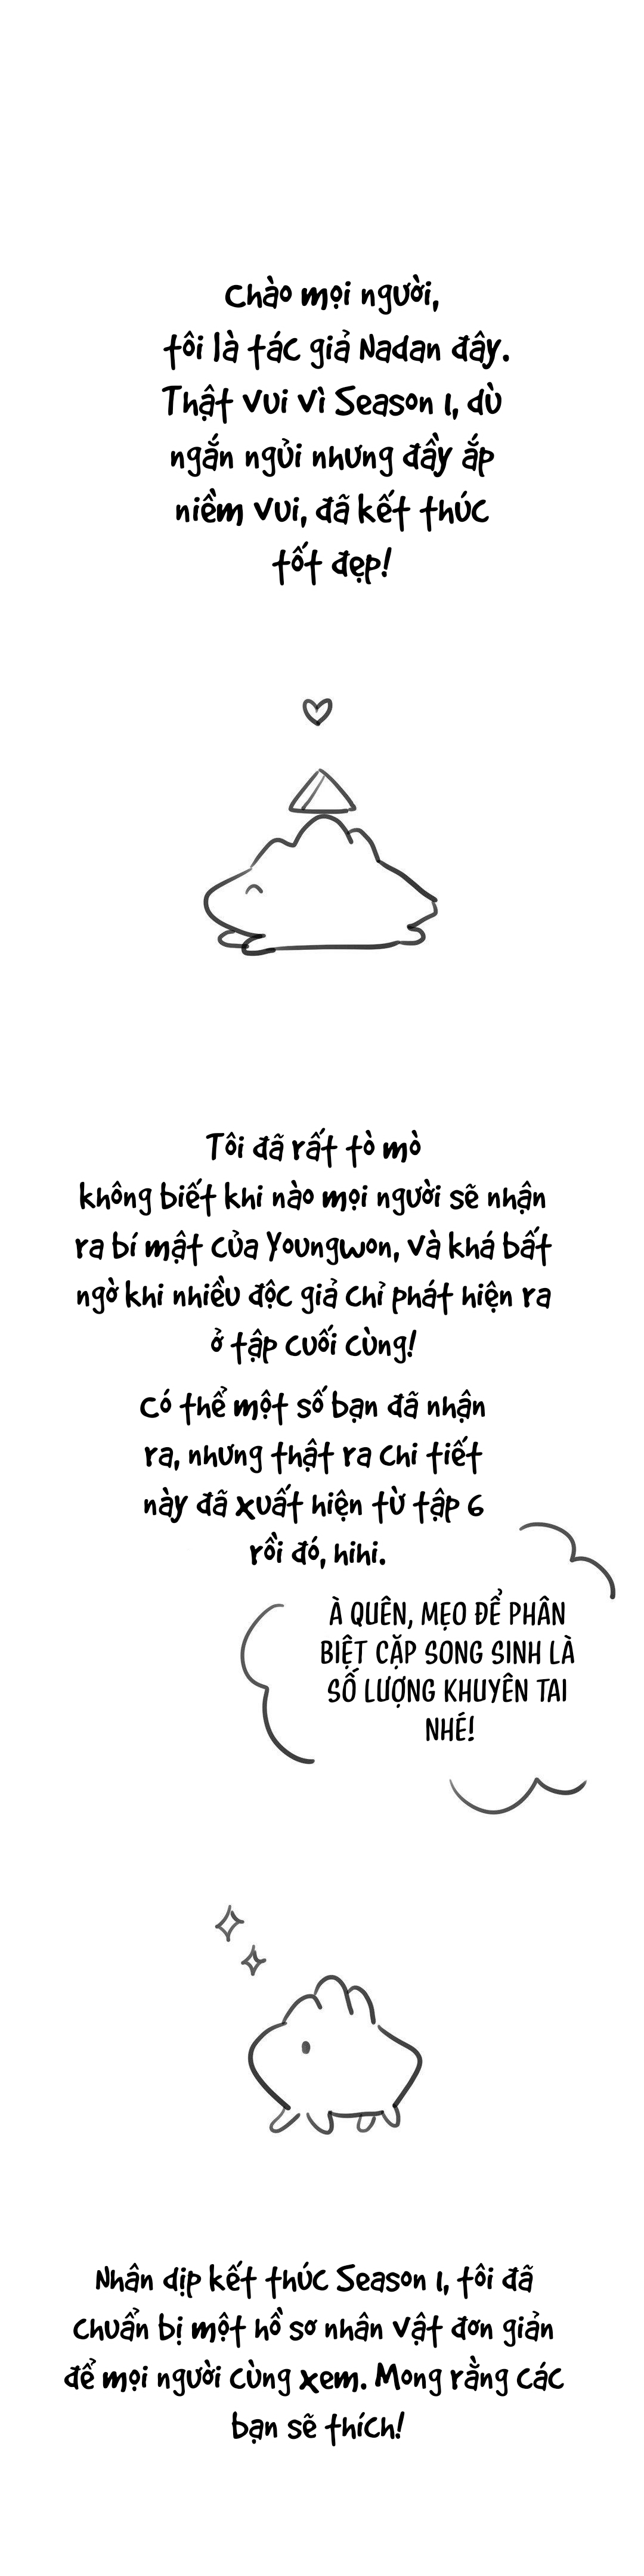 Chào mọi người,
tôi là tác giả Nadan đây.
Thật vui vì Season 1, dù
ngắn ngủi nhưng đầy ắp
niềm vui, đã kết thúc
tốt đẹp!
Tôi đã rất tò mò
không biết khi nào mọi người sẽ nhận
ra bí mật của Youngwon, và khá bất
ngờ khi nhiều độc giả chỉ phát hiện ra
ở tập cuối cùng!
Có thể một số bạn đã nhận
ra, nhưng thật ra chi tiết
này đã xuất hiện từ tập 6
rồi đó, hihi.
À QUÊN, MẸO ĐỂ PHÂN
BIỆT CẶP SONG SINH LÀ
SỐ LƯỢNG KHUYÊN TAI
NHÉ!
Nhân dịp kết thúc Season 1, tôi đã
chuẩn bị một hồ sơ nhân vật đơn giản
để mọi người cùng xem. Mong rằng các
bạn sẽ thích!